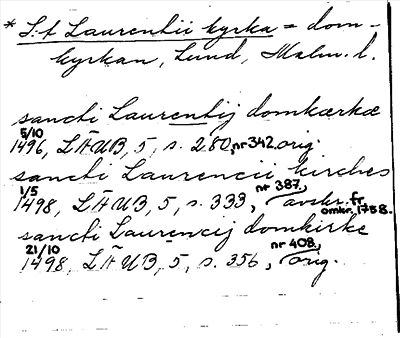 * S:t Laurentii kyrka = dom-
kyrkan, Lund, Malm. l.
sancti Laurentij domkærkæ
5/10 1496, LÄUB, 5, s. 280, nr 342. orig.
sancti Laurencii kirches
1/5 1498, LÄUB, 5, s. 333, nr 387, avskr. fr. omkr. 1758.
sancti Laurencij domkirke
21/10 1498, LÄUB, 5, s. 356, nr 408, orig.